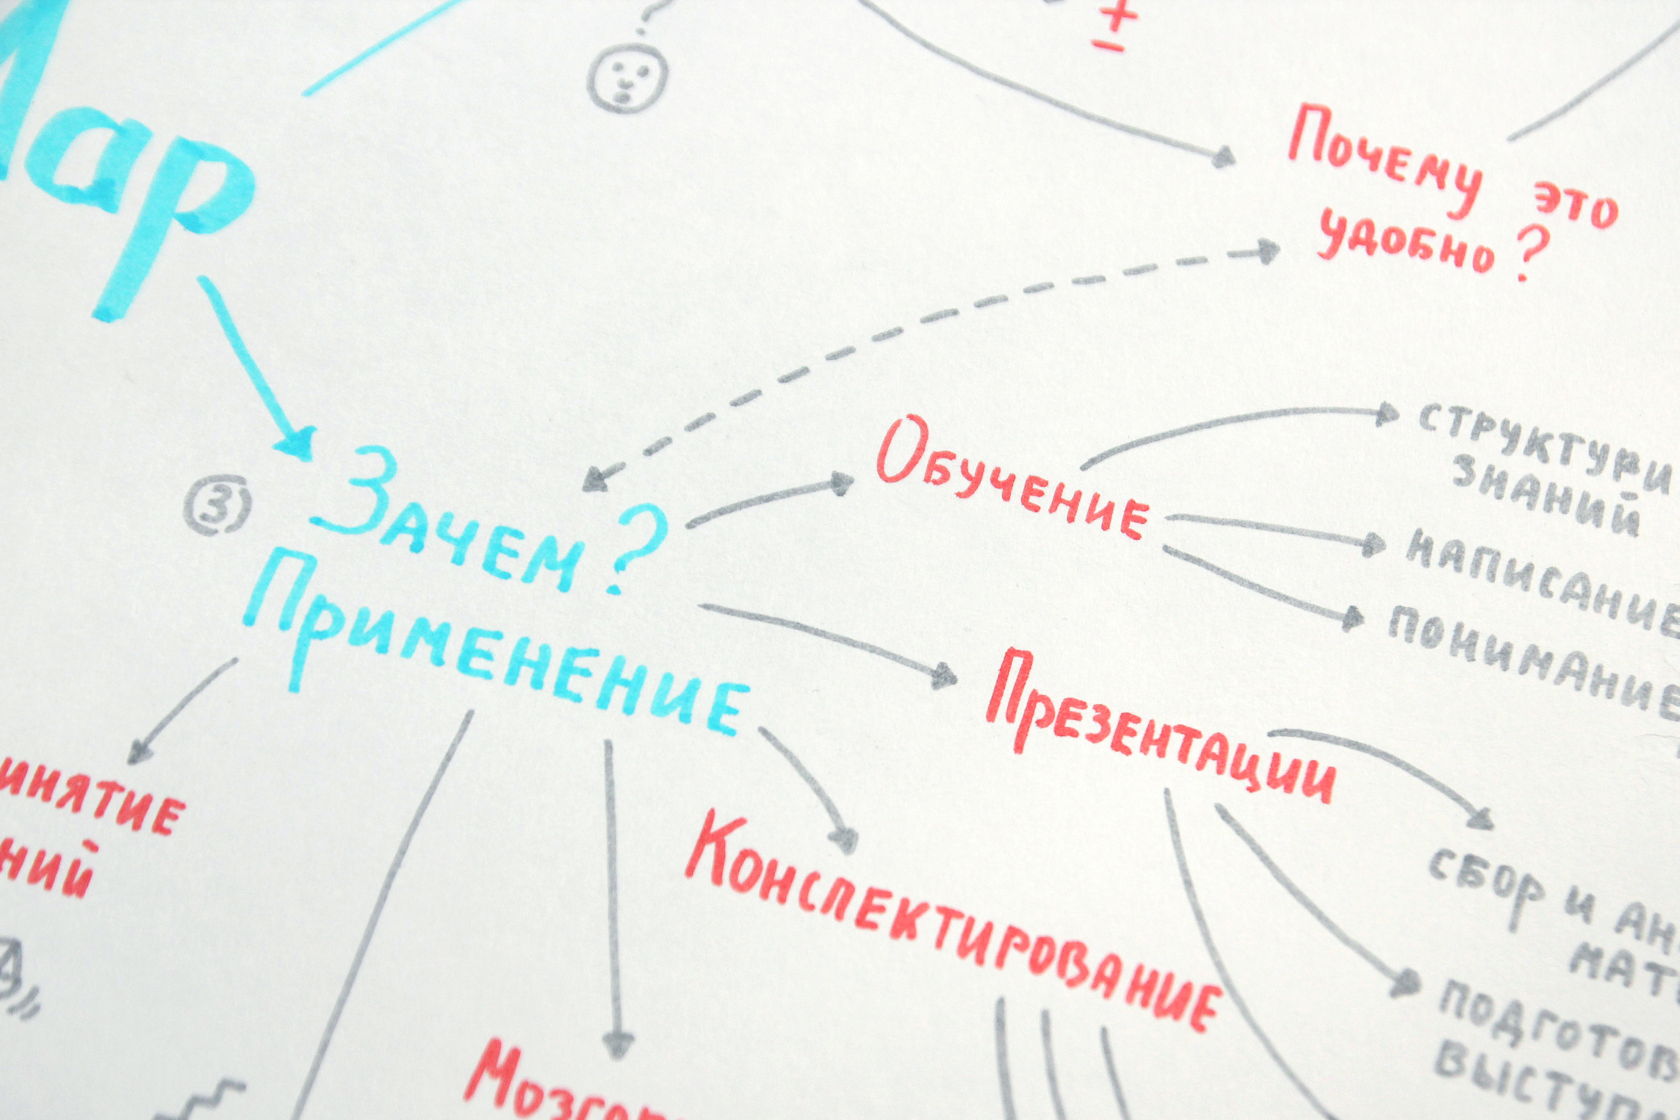 Map
±
Почему это
удобно?
③
Зачем?
Применение
Обучение
структури
знаний
написание
понимание
Презентации
сбор и ан
мат
подготов
выступ
Конспектирование
инятие
ний
Мозгов